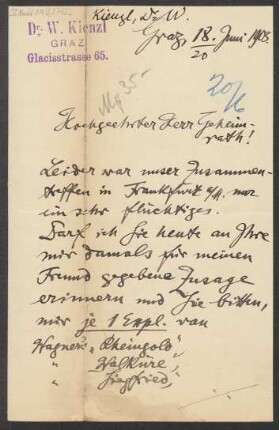 Kienzl, Dr. W.
Dr. W. Kienzl
GRAZ
Glacisstrasse 65.
Graz, 18. Juni 1903
20
Mk 35.-
20/6
Hochgeehrter Herr Geheim-
rath!
Leider war unser Zusammen-
treffen in Frankfurt a/M. nur
ein sehr flüchtiges.
Darf ich Sie heute an Ihre
mir damals für meinen
Freund gegebene Zusage
erinnern und Sie bitten,
mir je 1 Expl. von
Wagner's „Rheingold",
" „Walküre",
" „Siegfried",